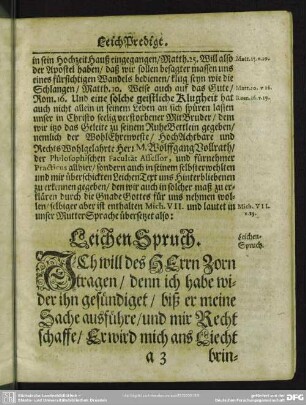 LeichPredigt.
in sein HochzeitHauß eingegangen/Matth.25. Will also
der Apostel haben/ daß wir sollen besagter massen uns
eines fürsichtigen Wandels bedienen/ klug seyn wie die
Schlangen/ Matth.10. Weise auch auf das Gute/
Rom.16. Und eine solche geistliche Klugheit hat
auch nicht allein in seinem Leben an sich spüren lassen
unser in Christo seelig verstorbener MitBruder/ den
wir itzo das Geleite zu seinem RuheBettlein gegeben/
nemlich der WohlEhrenveste/ Hochachtbare und
Rechts Wohlgelahrte Herr M. Wolffgang Vollrath/
der Philosophischen Facultät Assessor, und fürnehmer
Practicus allhier/ sondern auch in seinem selbst erwehlten
und mir überschickten LeichenText uns Hinterbliebenen
zu erkennen gegeben/ den wir auch in solcher maß zu er-
klären durch die Gnade Gottes für uns nehmen wol-
len/ selbiger aber ist enthalten Mich. VII. und lautet in
unser MutterSprache übersetzet also:
Matt. 25. v. 10.
Matt. 10. v 16.
Rom. 16. v. 19.
Mich. VII.
v. 9.
Leichen Spruch.
Leichen-
Spruch.
ICh will des HErrn Zorn
tragen/ denn ich habe wi-
der ihn gesündiget/ biß er meine
Sache ausführe/ und mir Recht
schaffe/ Er wird mich ans Liecht
a 3
brin-